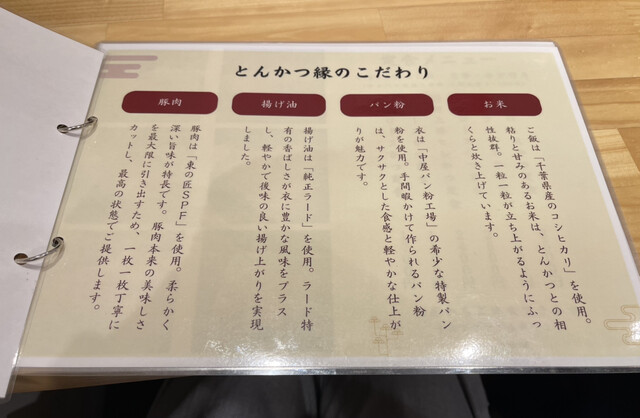 とんかつ縁のこだわり
お米
ご飯は「千葉県産のコシヒカリ」を使用。
粘りと甘みのあるお米は、とんかつとの相
性抜群。一粒一粒が立ち上がるようにふっ
くらと炊き上げています。
パン粉
衣は「中屋パン粉工場」の希少な特製パン
粉を使用。手間暇かけて作られるパン粉
は、サクサクとした食感と軽やかな仕上が
りが魅力です。
揚げ油
揚げ油は「純正ラード」を使用。ラード特
有の香ばしさが衣に豊かな風味をプラス
し、軽やかで後味の良い揚げ上がりを実現
しました。
豚肉
豚肉は「東の匠SPF」を使用。柔らかく
深い旨味が特長です。豚肉本来の美味しさ
を最大限に引き出すため、一枚一枚丁寧に
カットし、最高の状態でご提供します。